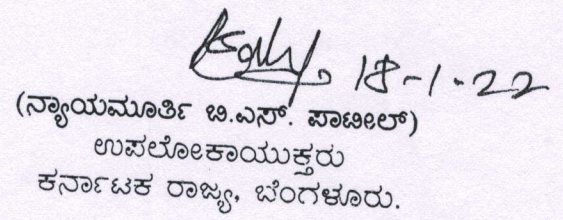 18-1-22
(ನ್ಯಾಯಮೂರ್ತಿ ಬಿ.ಎಸ್. ಪಾಟೀಲ್)
ಉಪಲೋಕಾಯುಕ್ತರು
ಕರ್ನಾಟಕ ರಾಜ್ಯ, ಬೆಂಗಳೂರು.